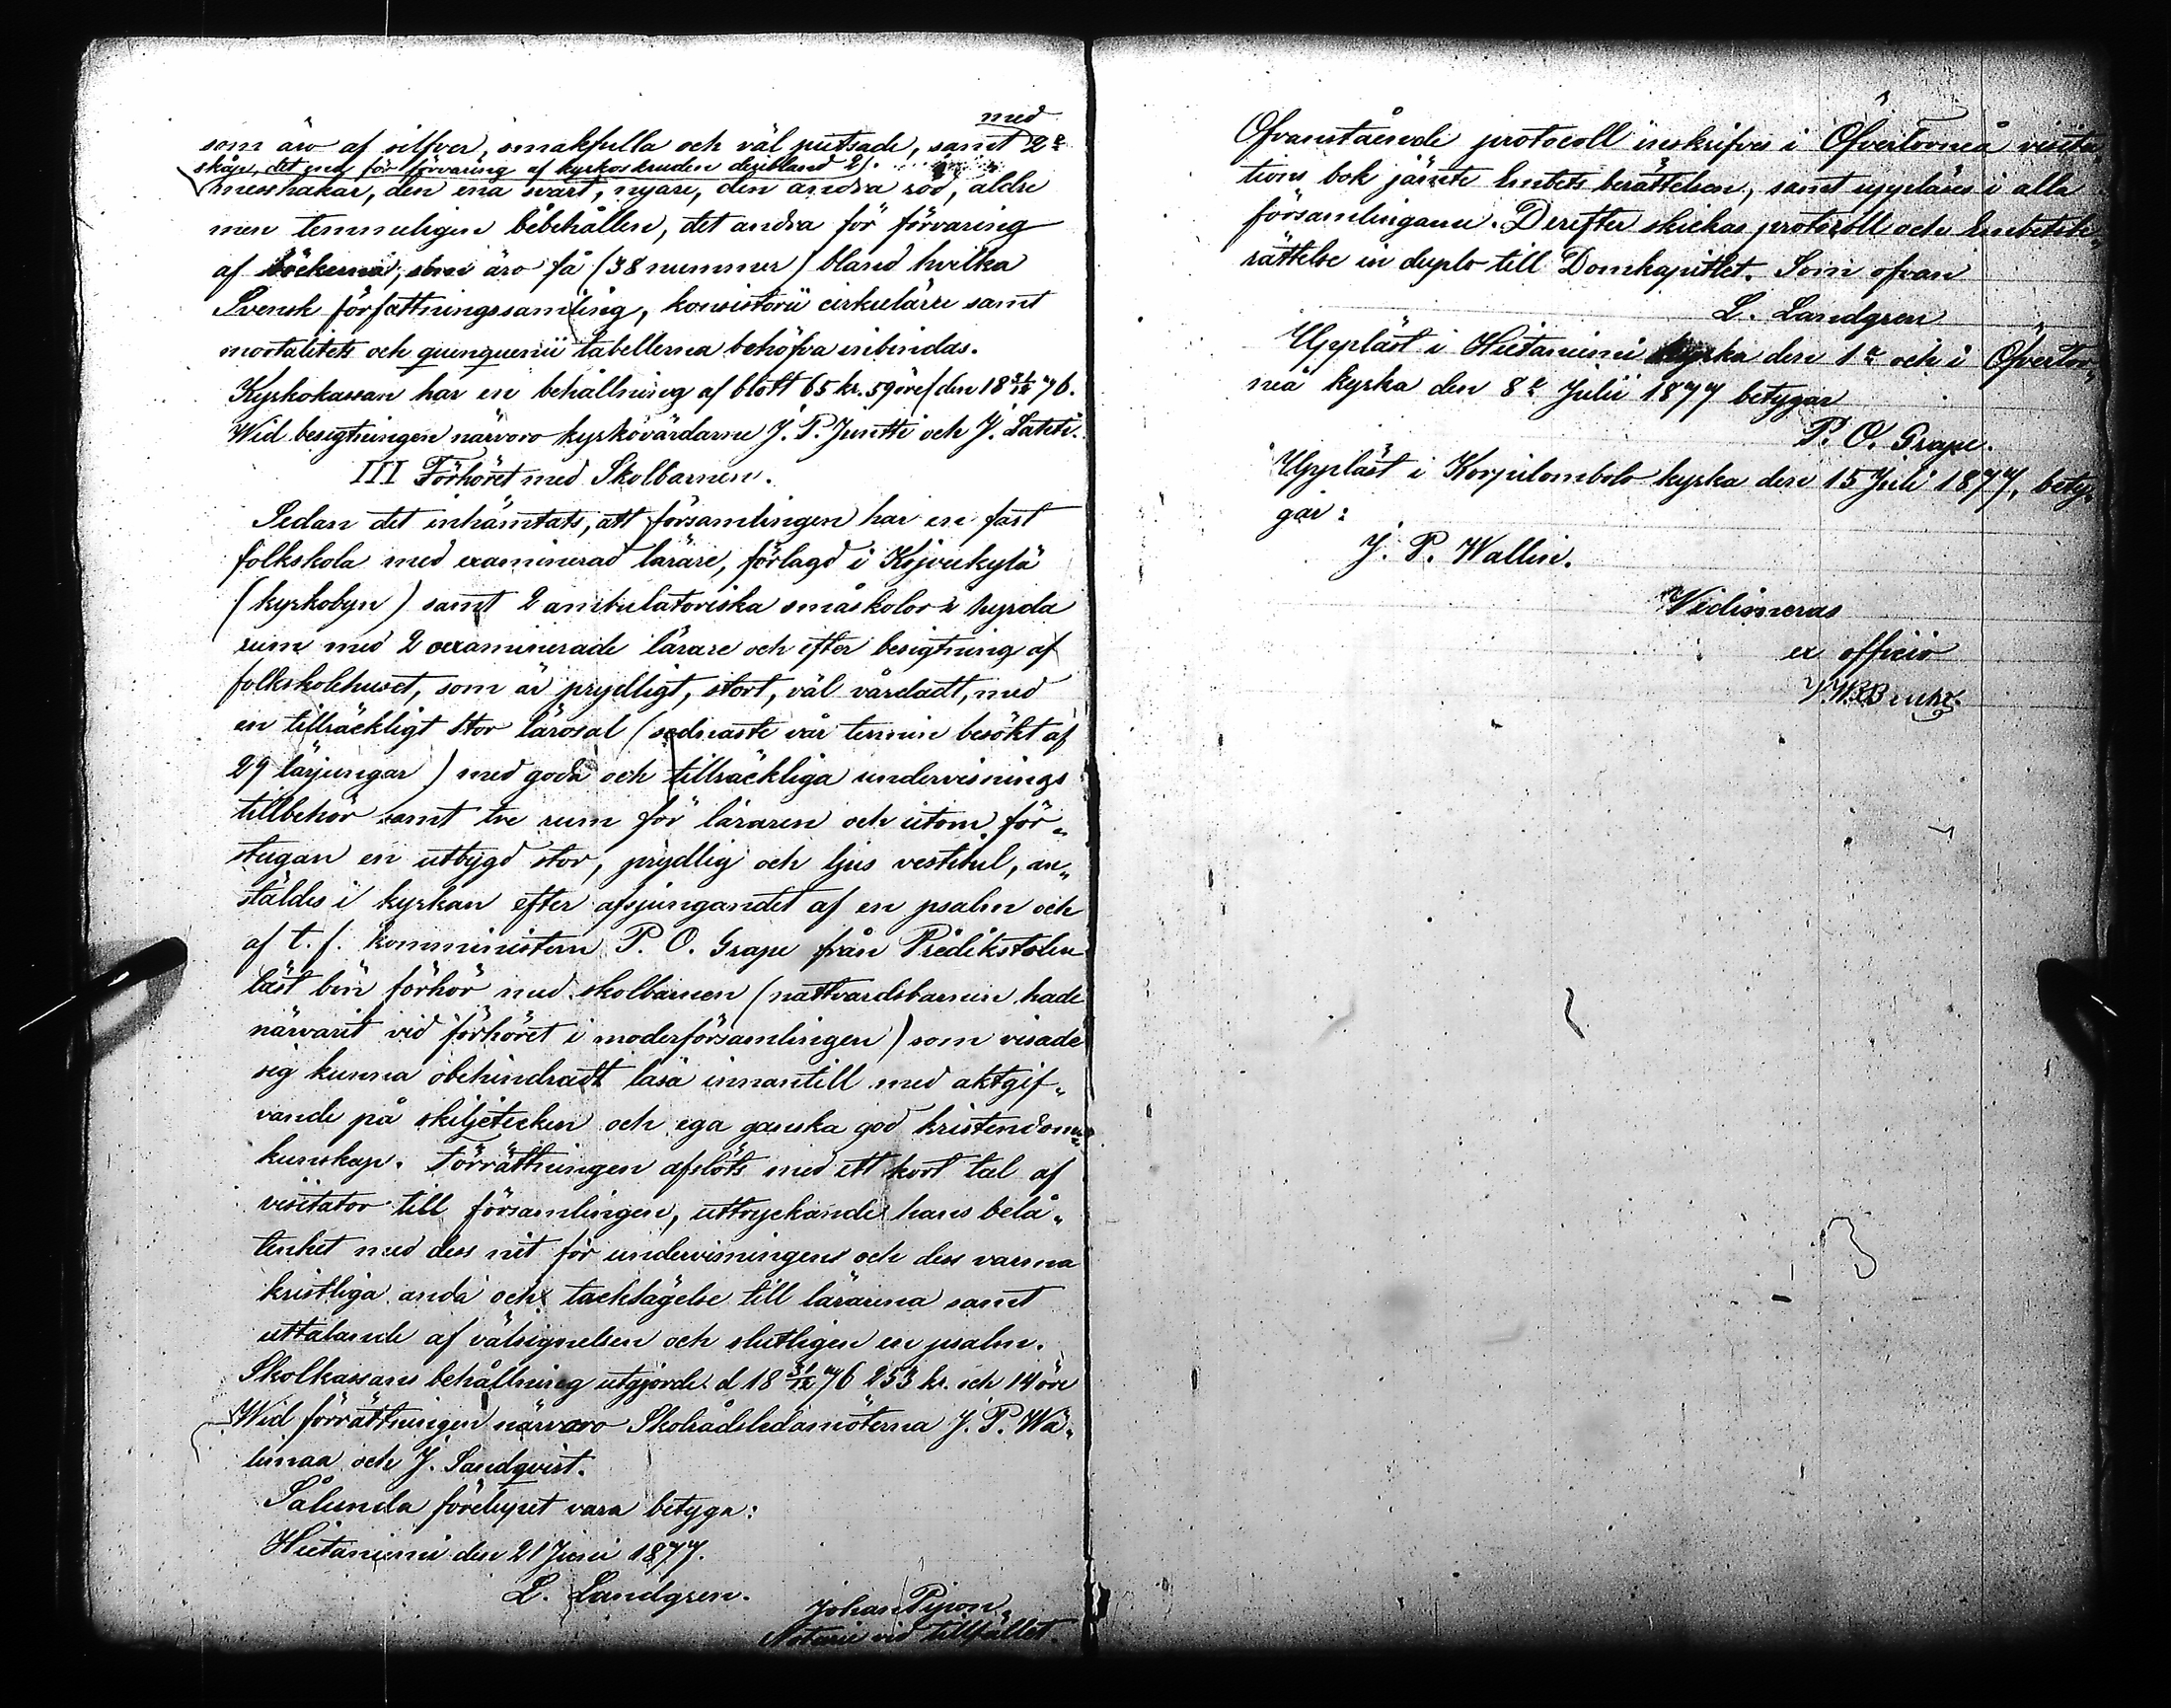 med
som äro af silfver, smakfulla och väl putsade, samt 2e
skåp, det ena för förvaring af kyrkoskruden deribland 2).
messhakar, den ena svart, nyare, den andra röd, äldre
men temmeligen bibehållen, det andra för förvaring
af böckerna, som äro få (38 nummer) bland hvilka
Svensk författningssamling, konsistorii cirkulärer samt
mortalitets och quinquenii tabellerna behöfva inbindas.
Kyrkokassan har en behållning af blott 65 kr. 59 öre den 18 31/12 76.
Wid besigtningen närvoro kyrkovärdarne J. P. Juntti och J. Lahti.
III Förhöret med Skolbarnen.
Sedan det inhämtats, att församlingen har en fast
folkskola med examinerad lärare, förlagd i
(kyrkobyn) samt 2 ambulatoriska småskolor i hyrda
rum med 2 oexaminerade lärare och efter besigtning af
folkskolehuset, som är prydligt, stort, väl vårdadt, med
en tillräckligt stor lärosal (sednaste vår termin besökt af
29 lärjungar) med goda och tillräckliga undervisnings
tillbehör samt tre rum för läraren och utom för„
stugan en utbygd stor, prydlig och ljus vestibul, an„
stäldes i kyrkan efter afsjungandet af en psalm och
af t. f. komministern P. O. Grape från Predikstolen
läst bön förhör med skolbarnen (nattvardsbarnen hade
närvarit vid förhöret i moderförsamlingen) som visade
sig kunna obehindradt läsa innantill med aktgif„
vande på skiljetecken och ega ganska god kristendoms„
kunskap. Förrättningen afslöts med ett kort tal af
visitator till församlingen, uttryckande hans belå„
tenhet med dess nit för undervisningen och dess varma
kristliga anda och tacksägelse till lärarena samt
uttalande af välsignelsen och slutligen en psalm.
Skolkassans behållning utgjorde d 18 31/12 76 253 kr. och 14 öre
Wid förrättningen närvoro Skolrådsledamöterna J. P. Wä„
limaa och J. Sandqvist.
Sålunda förelupet vara betyga:
Hietaniemi den 21 Juni 1877.
L. Landgren.
Johan
Notarie vid tillfället.
Ofvanstående protocoll inskrifves i Öfvertorneå visita
tions bok jämte Embets berättelsen, samt uppläses i alla
församlingarne. Derefter skickas protocoll och Embetsbe„
rättelse in duplo till Domkapitlet. Som ofvan
L. Landgren
Uppläst i Hietaniemi kyrka den 1e och i Öfvertor„
neå kyrka den 8e Julii 1877 betygar
P. O. Grape.
Uppläst i Korpilombolo kyrka den 15 Juli 1877, bety„
gar:
J. P. Wallin.
Vidimeras
ex officio